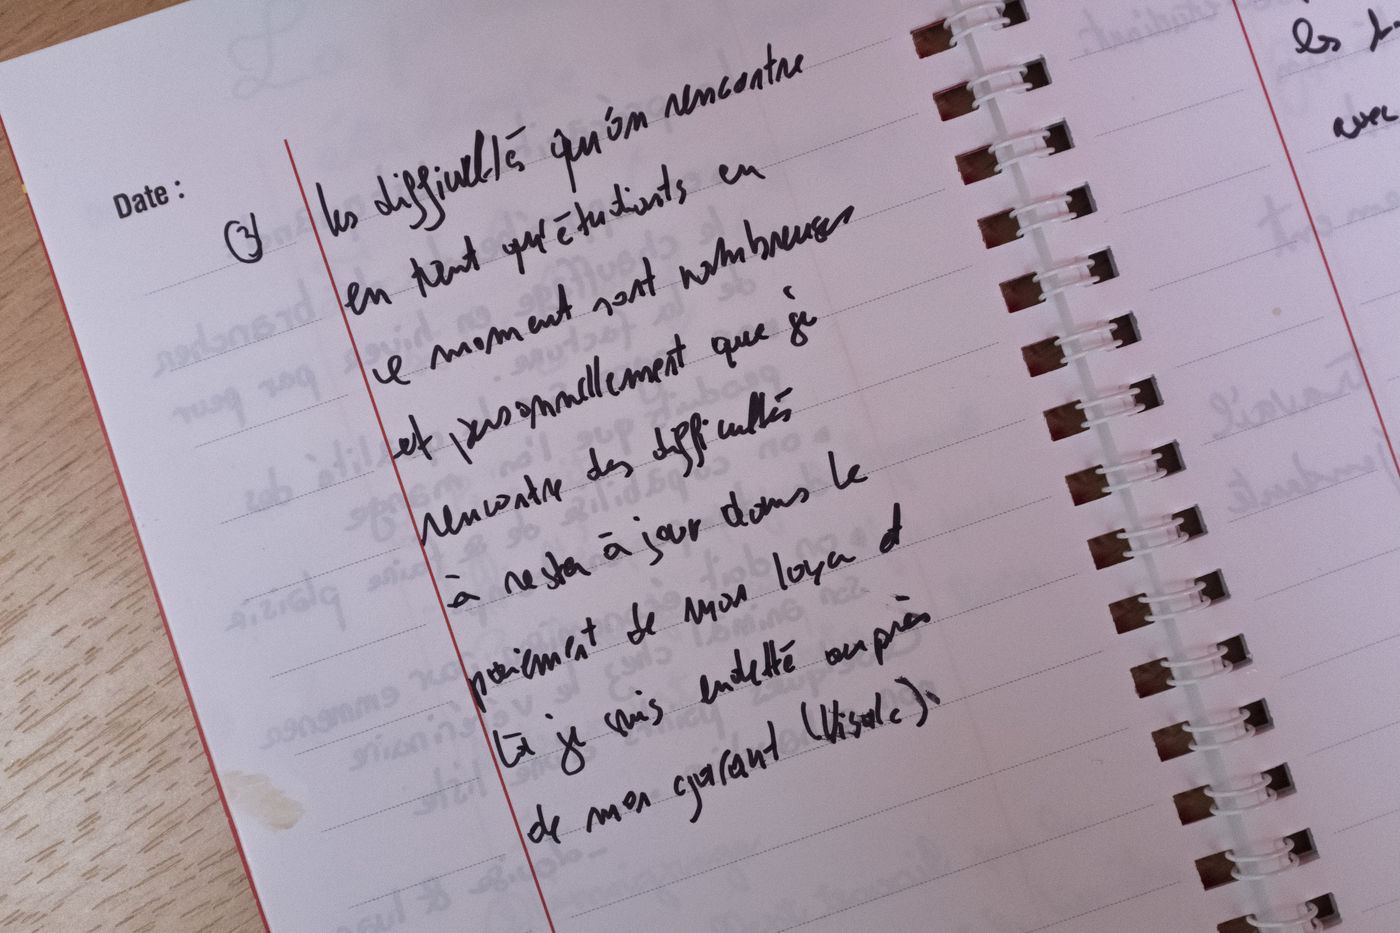 Date :
③ les difficultés qu'on rencontre
en tant qu'étudiants en
ce moment sont nombreuses
et personnellement que je
rencontre des difficultés
à rester à jour dans le
paiement de mon loyer et
là je suis endetté auprès
de mon garant (Visale).
les
avec